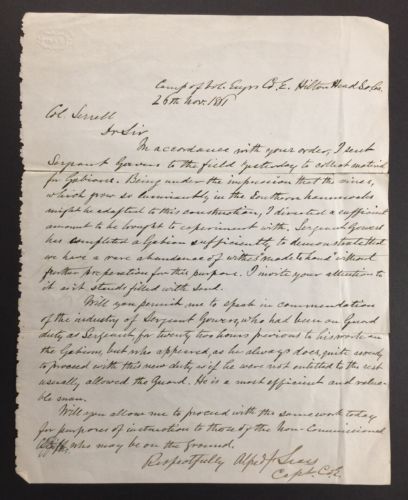 Camp of Vol. Engrs Co. E. Hilton Head So Ca.
26th Nov. 1861
Col. Serrell
Dr Sir,
In accordance with your order, I sent
Sergeant Gowers to the field yesterday to collect material
for Gabions. Being under the impression that the vines,
which grow so luxuriantly in the Southern hammocks
might be adapted to this construction, I directed a sufficient
amount to be brought to experiment with. Sergeant Gowers
has completed a Gabion sufficiently to demonstrate that
we have a rare abundance of withes "made to hand" without
further preparation for this purpose. I invite your attention to
it as it stands filled with sand.
Will you permit me to speak in commendation
of the industry of Sergeant Gowers, who had been on Guard
duty as Sergeant for twenty two hours previous to his work on
the Gabion, but who appeared, as he always does, quite ready
to proceed with this new duty as if he were not entitled to the rest
usually allowed the Guard. He is a most efficient and valua-
ble man.
Will you allow me to proceed with the same work today
for purposes of instruction to those of the Non-Commissioned
who may be on the Ground.
Respectfully Alfred F. Sears
Capt. Co. E.